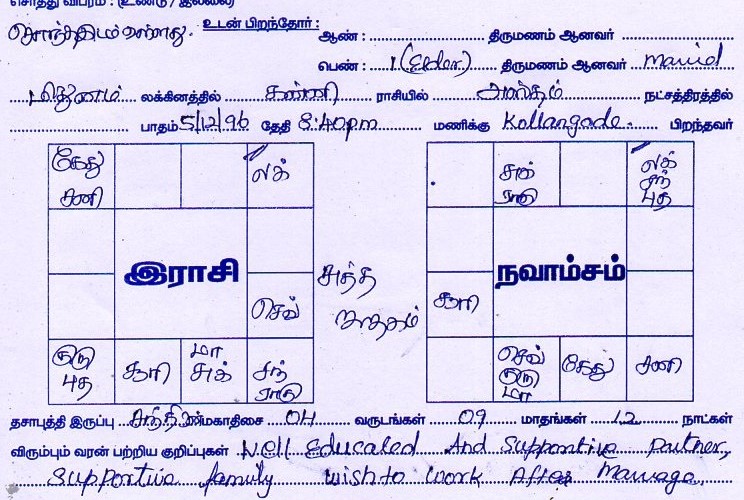 சொத்து விபரம் : (உண்டு / இல்லை)
உடன் பிறந்தோர் :
ஆண் : திருமணம் ஆனவர்
பெண் : 1 (Elder) திருமணம் ஆனவர் Married
மிதுனம் லக்கினத்தில் கன்னி ராசியில் அஸ்தம் நட்சத்திரத்தில்
பாதம் 5/12/96 தேதி 8:40pm மணிக்கு Kollangode பிறந்தவர்
கேது சனி லக்
சுக் ராகு லக் சந் புத
இராசி சுத்த ஜாதகம் நவாம்சம்
செவ் சூரி
குரு புத சூரி மா சுக் சந் ராகு
செவ் குரு மா கேது சனி
தசாபுத்தி இருப்பு சந்திர மகாதிசை 04 வருடங்கள் 09 மாதங்கள் 12 நாட்கள்
விரும்பும் வரன் பற்றிய குறிப்புகள் Well Educated And Supportive Partner,
Supportive family wish to work After Marriage.